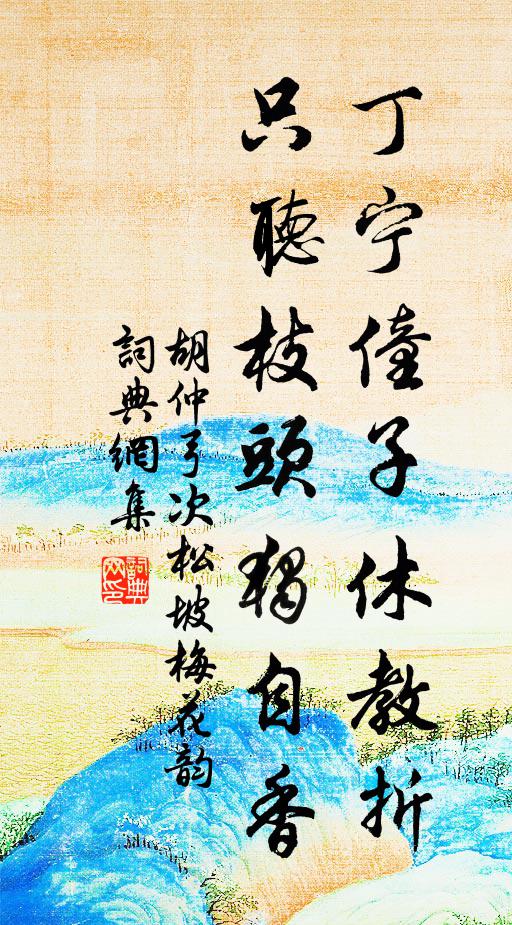 丁宁僮子休教折
只聽枝頭獨自香
胡仲弓次松坡梅花韵
詞典網集
詞典網印